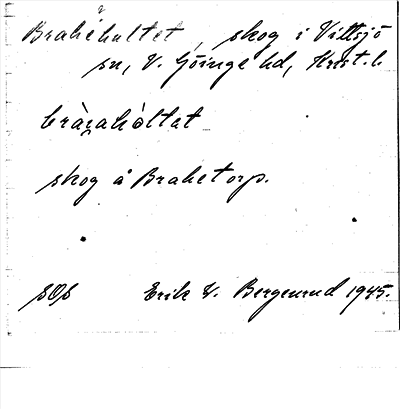 Brahehultet, skog i Vittsjö
sn, V. Göinge hd, Krist. l.
bràzahòltat
skog å Brahetorp.
SOS Erik V. Bergenrud 1945.